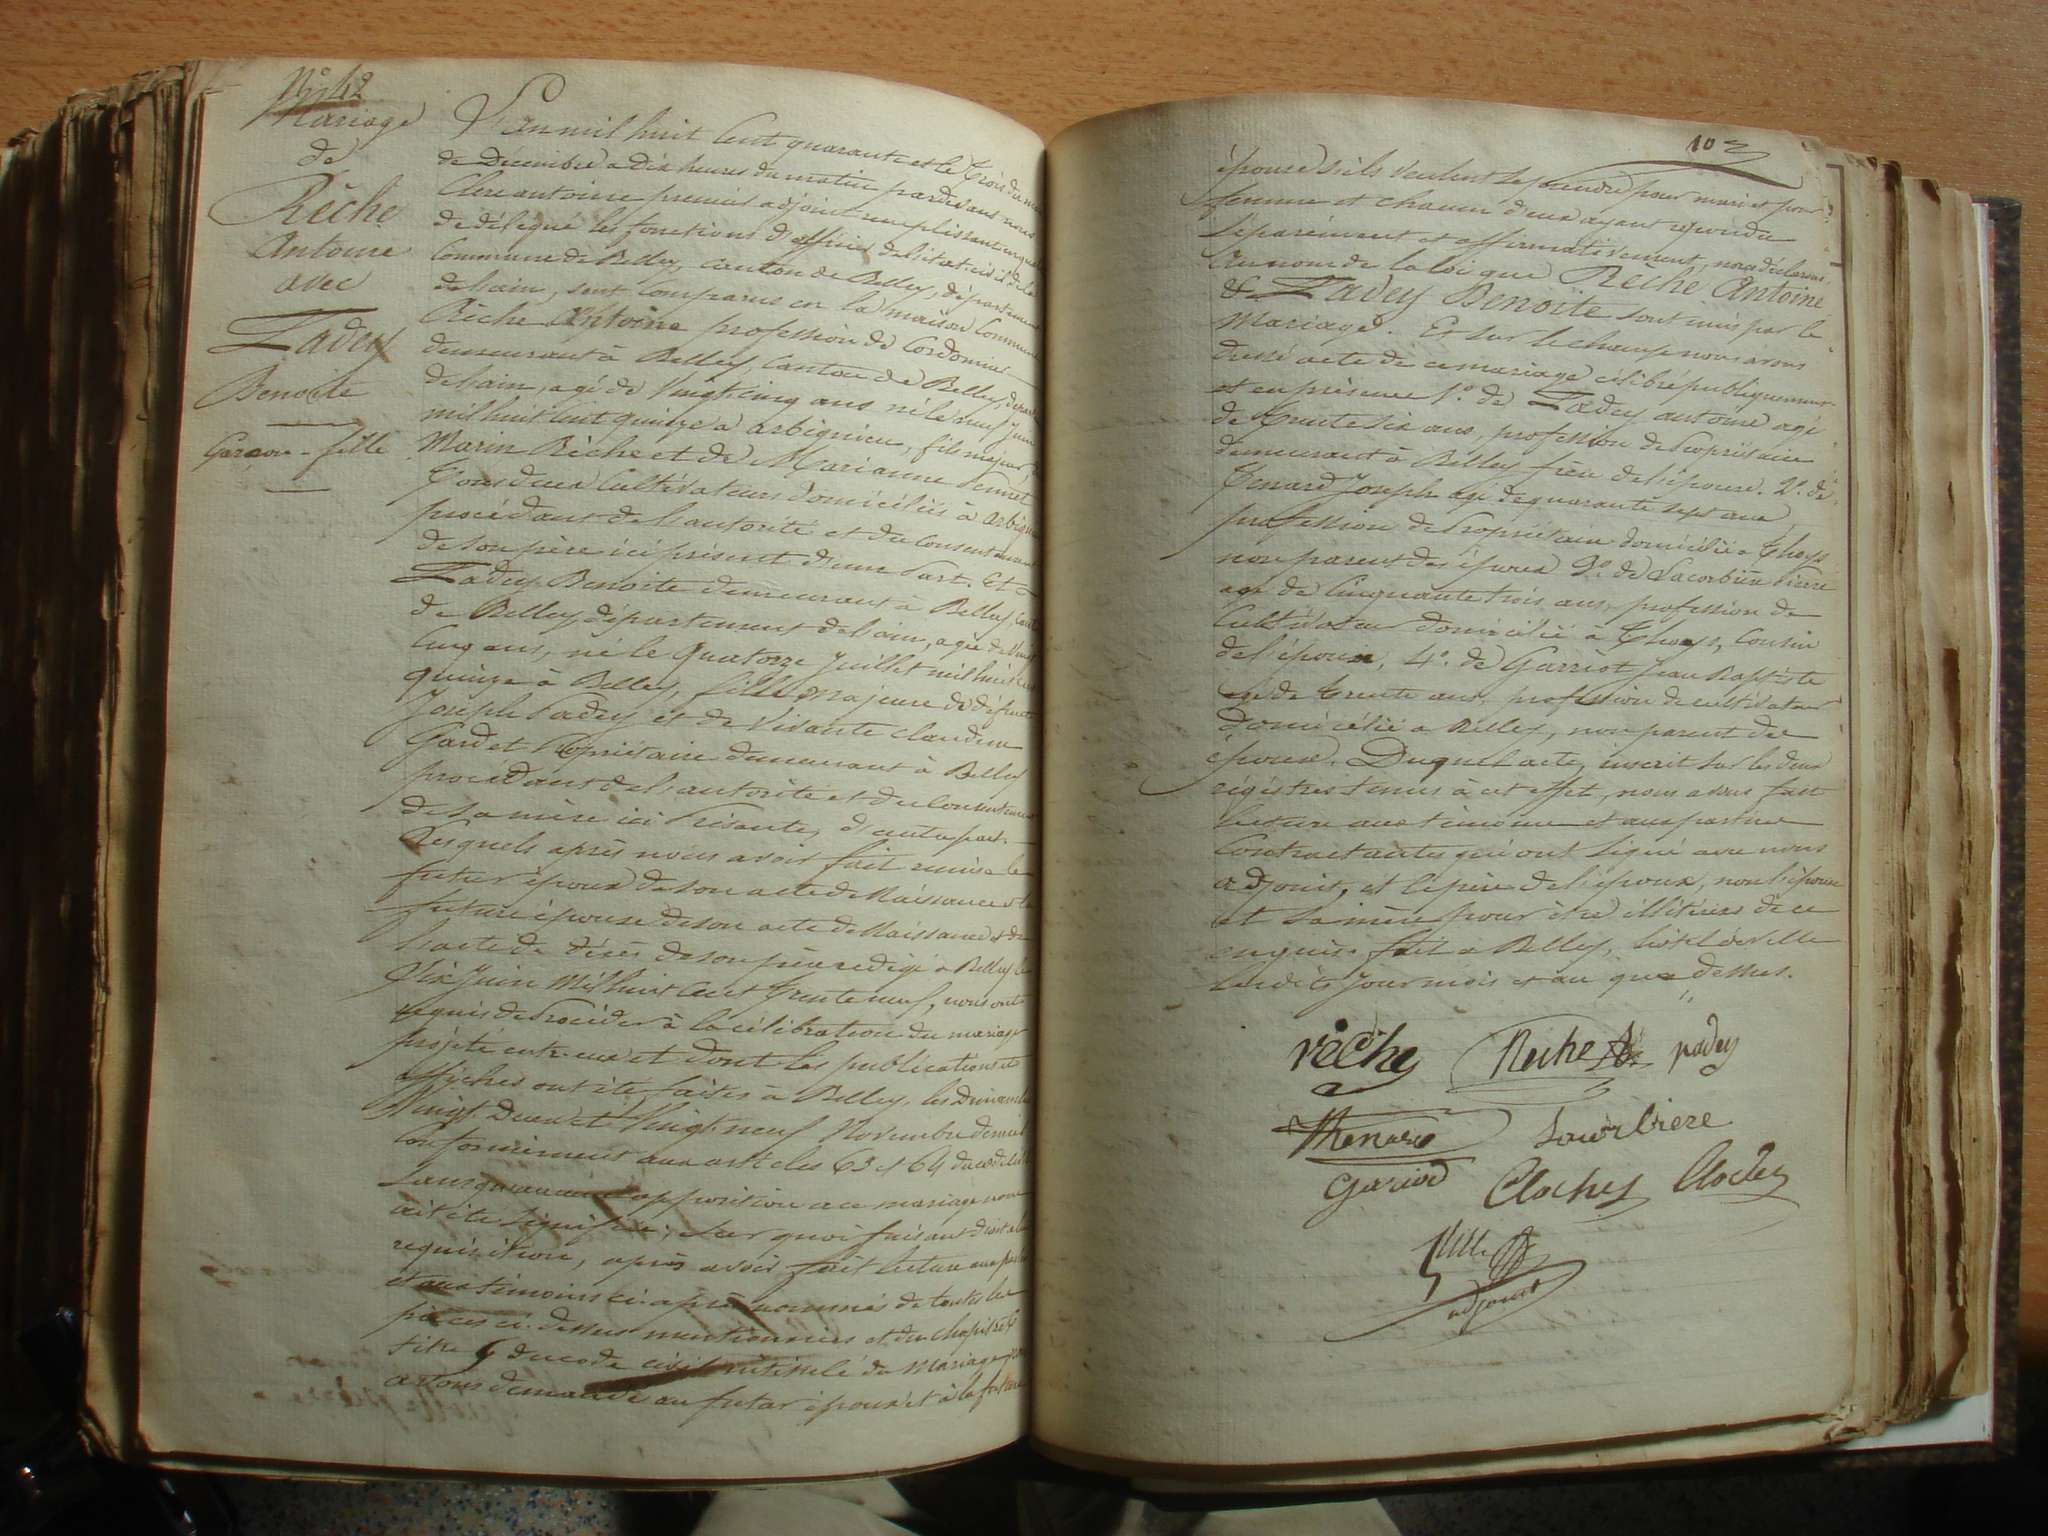 N° 42
Mariage
de
Rêche
Antoine
avec
Zadey
Benoite
Garçon - fille
L'an mil huit Cent quarante et le trois du mois
de décembre a dix heures du matin pardevant nous
Clerc antoine premier adjoint remplissant en qualité
de délégué les fonctions d'officier de l'état civil de la
Commune de Belley, canton de Belley, département
de l'ain, sont Comparus en la maison Commune
Rêche Antoine profession de Cordonnier
demeurant à Belley, Canton de Belley, dépar
de l'ain, agé de Vingt cinq ans né le neuf Juin
mil huit cent quinze à arbignieu, fils majeur de
Marin Rêche et de Marianne
Tous deux Cultivateurs domiciliés à arbignieu
procédant de l'autorité et du Consentement
de son père ici présent d'une Part. Et
Zadey Benoite demeurant à Belley, Cant
de Belley, département de l'ain, agée de Vingt
Cinq ans, né le Quatorze Juillet mil huit cent
quinze à Belley, fille majeure de défunt
Joseph Zadey et de Vivante claudine
Gardet Propriétaire demeurant à Belley
procédant de l'autorité et du Consentement
de sa mère ici Présente, d'autre part.
Lesquels après nous avoir fait remise le
futur époux de son acte de Naissance et la
future épouse de son acte de Naissance et de
l'acte de décès de son père redigé à Belley le
Dix Juin Mil huit Cent Trente neuf, nous ont
requis de Procéder à la célébration du mariage
projeté entr'eux et dont les publications et
affiches ont été faites à Belley, les Dimanches
Vingt Deux et Vingt neuf Novembre dernier
Conformément aux articles 63 et 64 du code civil
Sans qu'aucune opposition a ce mariage nous
ait été signifiée, Sur quoi faisant droit à leur
requisition, après avoir fait lecture aux parties
et aux témoins ci-après nommés de toutes les
pièces ci-dessus mentionnées et du chapitre 6
titre 5 du code civil intitulé du Mariage
avons demandé au futur époux et à la future
103
épouse s'ils veulent se prendre pour mari et pour
femme et chacun d'eux ayant répondu
Séparément et affirmativement, nous déclarons
Au nom de la loi que Rêche Antoine
& Zadey Benoîte sont unis par le
Mariage. Et sur le champ nous avons
dressé acte de ce mariage célébré publiquement
et en présence 1°. de Zadey antoine agé
de trente six ans, profession de Propriétaire
demeurant à Belley frère de l'épouse. 2°. de
Thenard Joseph agé de quarante sept ans,
profession de Propriétaire domicilié à Thoys
non parent des époux 3°. de Lacorbière Pierre
agé de Cinquante trois ans, profession de
Cultivateur domicilié à Thoys, Cousin
de l'époux, 4°. de Garriot Jean Baptiste
agé de trente ans, profession de cultivateur
domicilié à Belley, non parent des
époux. Duquel acte, inscrit sur les deux
régistres tenus à cet effet, nous avons fait
lecture aux témoins et aux parties
Contractantes qui ont signé avec nous
adjoint, et le père de l'époux, non l'épouse
et sa mère pour être illitérées de ce
enquis. fait à Belley, hôtel de ville
lesdits jour mois et an que dessus.
rèche Rèche padey
Thenard Lacorbiere
Gariod Cloches
adjoint